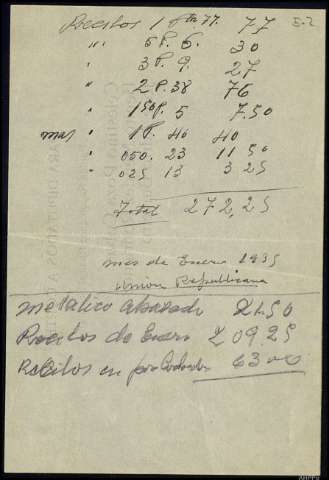 Recibos 1 Pta 77. 77
E-2
" 5 P. 6. 30
" 3 P. 9. 27
" 2 P. 38 76
" 1'50 P. 5 7.50
mas " 1 P. 40 40
" 050. 23 11 50
" 025 13 3 25
Total 272,25
mes de Enero 1935
Union Republicana
Metalico 21.50
Recibos de Enero 209.25
Recibos en 63 00